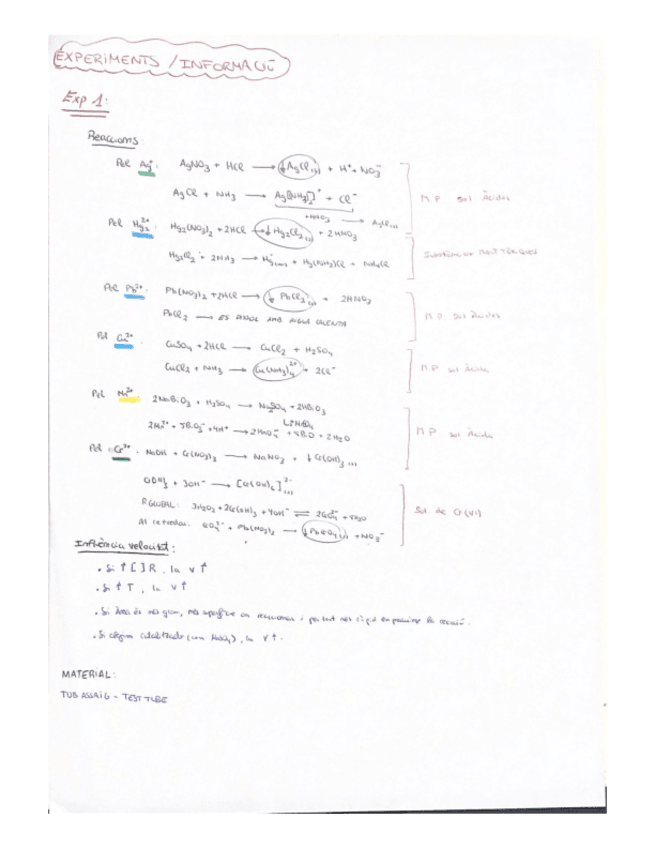 EXPERIMENTS / INFORMACIÓ
Exp 1:
Reaccions:
Pel Ag⁺: AgNO₃ + HCl → ↓AgCl(s) + H⁺ + NO₃⁻
AgCl + NH₃ → Ag[NH₃]₂⁺ + Cl⁻ M.P. sol àcides
+HNO₃ → AgCl(s)
Pel Hg₂²⁺: Hg₂(NO₃)₂ + 2HCl → ↓Hg₂Cl₂(s) + 2HNO₃
Hg₂Cl₂ + 2NH₃ → Hg + Hg(NH₂)Cl + NH₄Cl Substàncies MOLT TÒXIQUES
Pel Pb²⁺: Pb(NO₃)₂ + 2HCl → ↓PbCl₂(s) + 2HNO₃
PbCl₂ → ES DISSOL AMB AIGUA CALENTA M.P. sol àcides
Pel Cu²⁺:
CuSO₄ + 2HCl → CuCl₂ + H₂SO₄
CuCl₂ + NH₃ → Cu(NH₃)₄²⁺ + 2Cl⁻ M.P sol àcida
Pel Mn²⁺
2NaBiO₃ + H₂SO₄ → Na₂SO₄ + 2HBiO₃
2Mn²⁺ + 5BiO₃⁻ + 4H⁺ → 2MnO₄⁻ + + 2H₂O M.P sol àcida
Pel Cr³⁺: NaOH + Cr(NO₃)₃ → NaNO₃ + ↓Cr(OH)₃
+ 3OH⁻ → [Cr(OH)₆]
R.GLOBAL: 3H₂O₂ + 2Cr(OH)₃ + 4OH⁻ ⇌ 2CrO₄²⁻ + 8H₂O Sol. de Cr(VI)
Al refredar: CrO₄²⁻ + Pb(NO₃)₂ → ↓PbCrO₄(s) + NO₃⁻
Influència velocitat:
• Si ↑ [ ] R, la v ↑
• Si ↑ T, la v ↑
• Si àrea és més gran, més superfície on reaccionar i per tant més
• Si afegim catalitzador (com ), la v ↑.
MATERIAL:
TUB ASSAIG - TEST TUBE